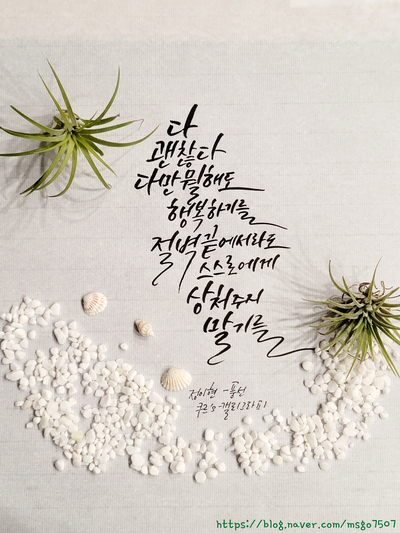 다
괜찮다
다만 뭘해도
행복하기를
절벽 끝에서라도
스스로에게
상처주지
말기를
정이현 - 풍선
캘리그라피
https://blog.naver.com/msgo7507